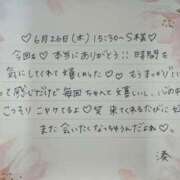 ♡6月26日(木) 15:30~S様♡
今回も♡本当にありがとう!!時間を
気にしてくれて嬉しかった♡♡もうまがりに
って感じだけど毎回ちゃんて嬉しい、、心の中で
こっそり こやけてるよ♡笑 来てくれるたびに
また会いたくなっちゃうんだよね♡。
湊